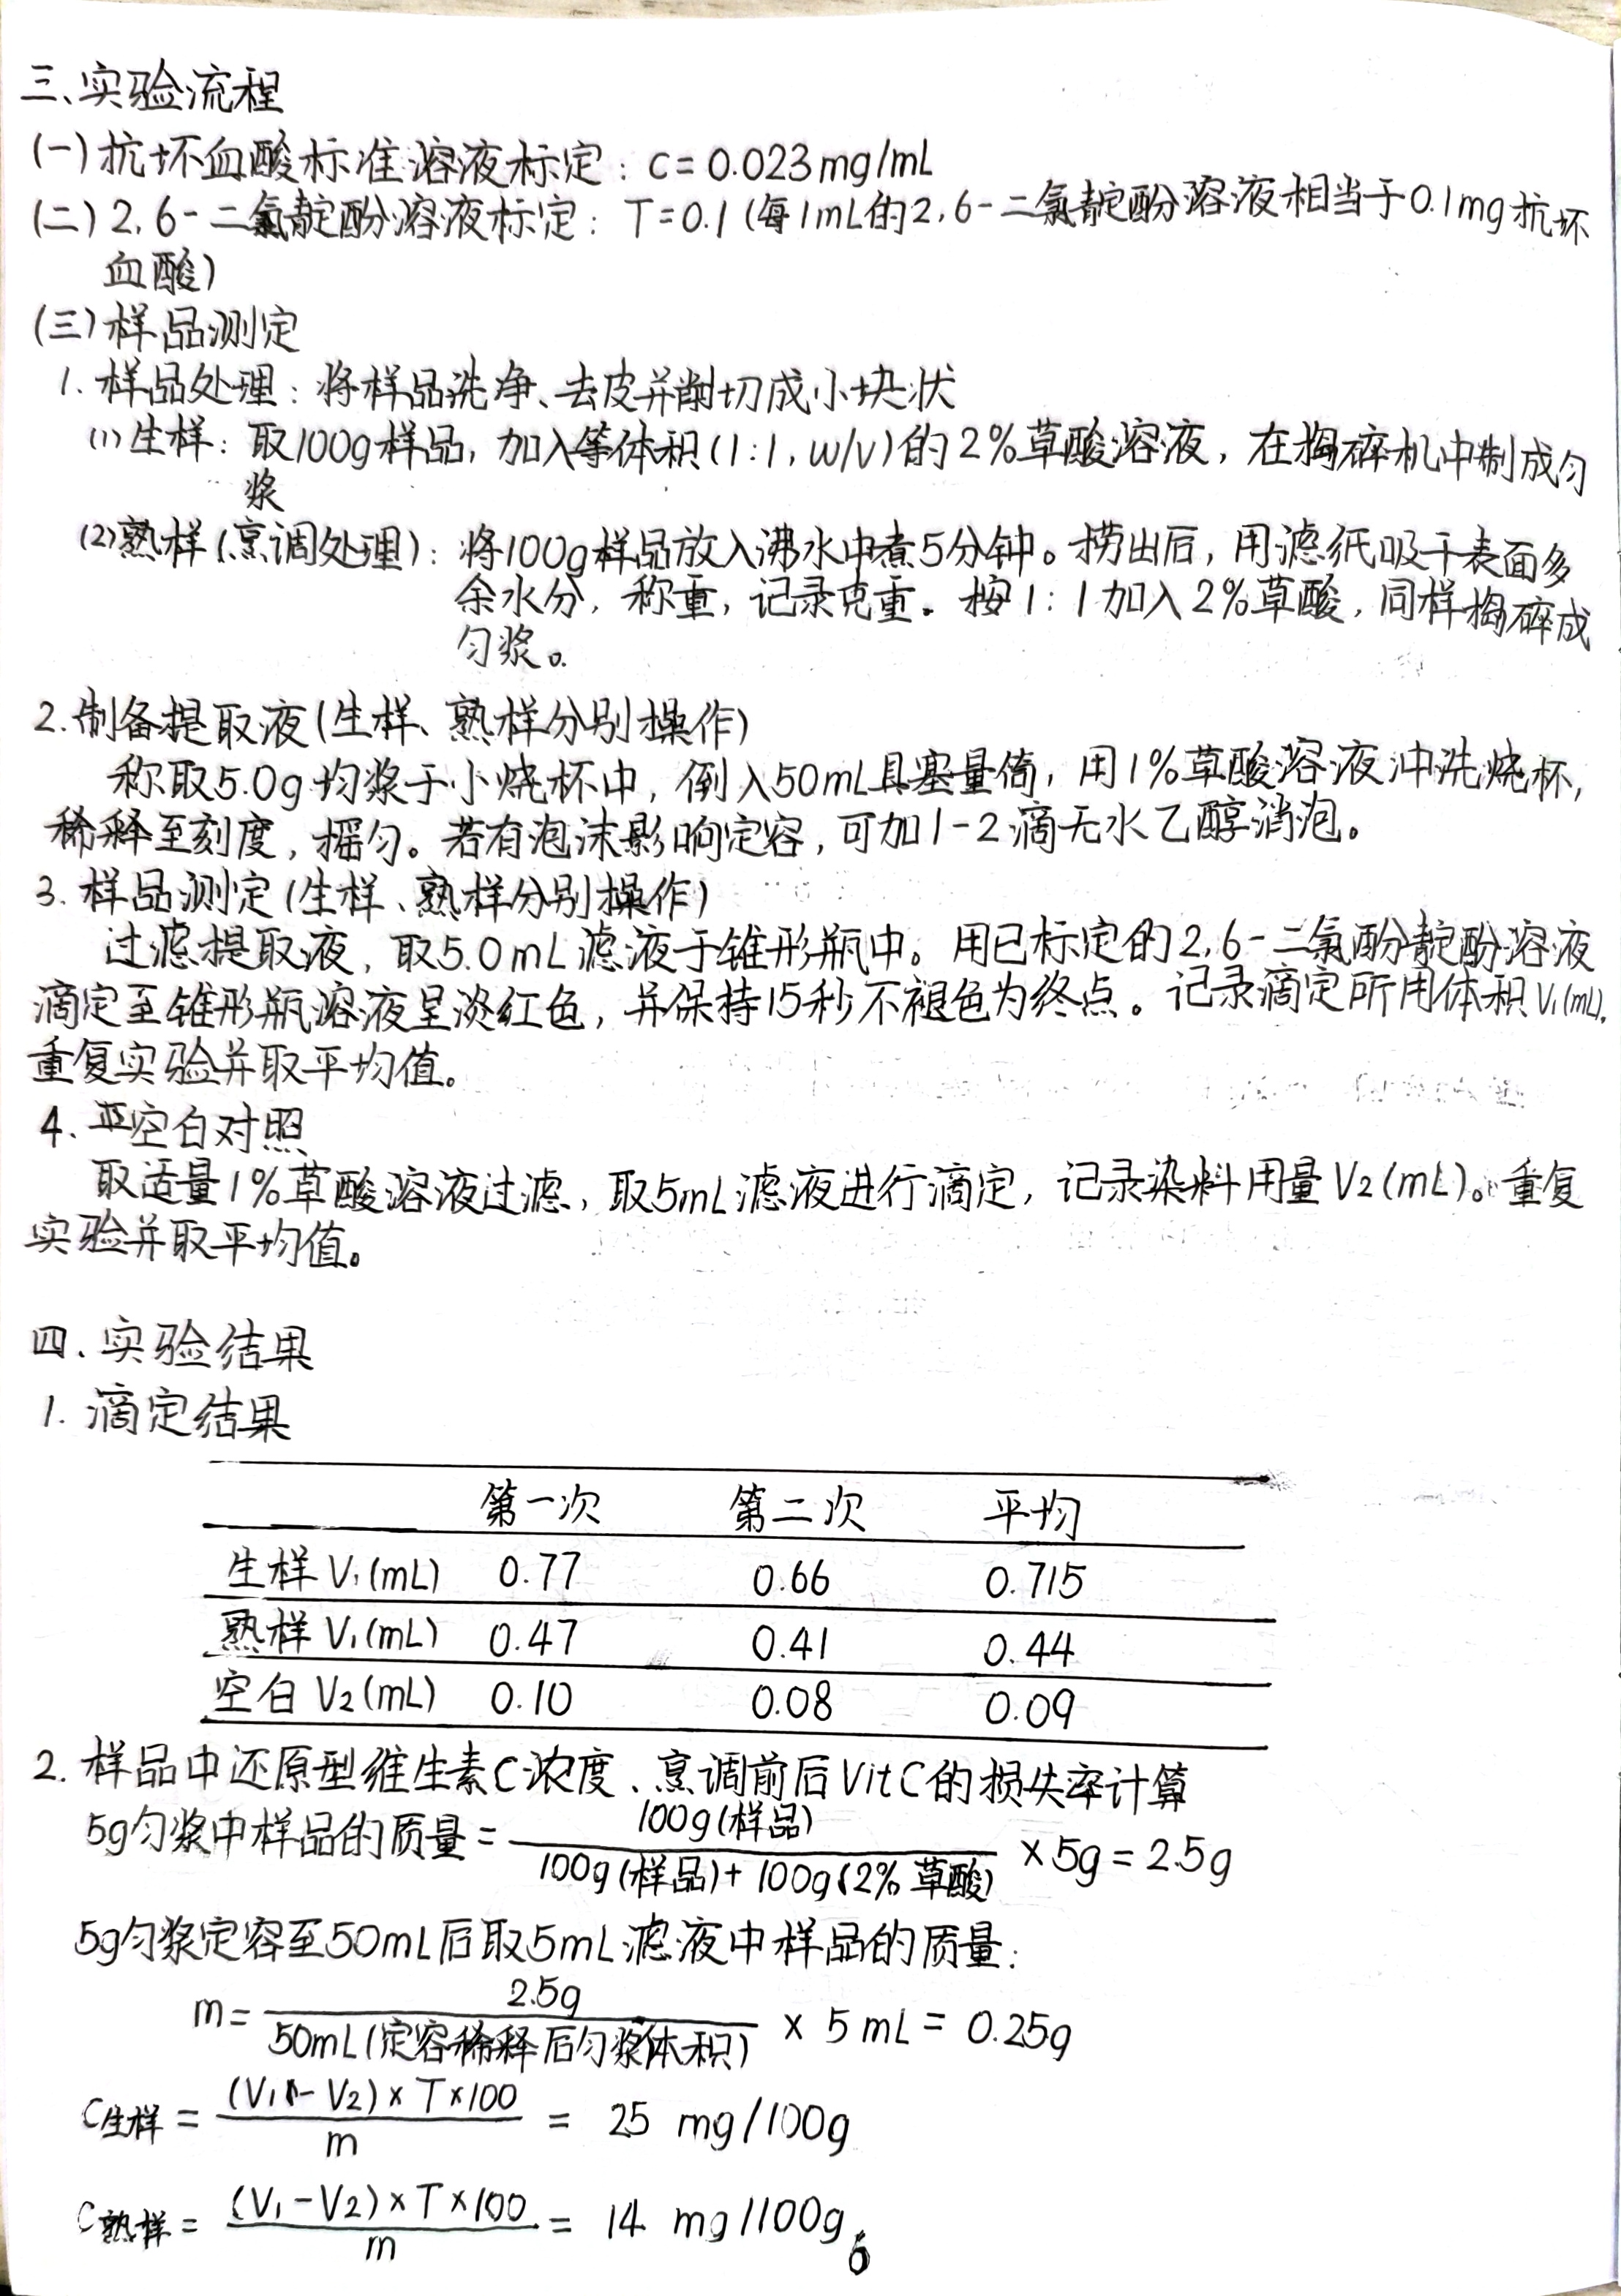 三、实验流程
(一)抗坏血酸标准溶液标定：c=0.023mg/mL
(二)2,6-二氯靛酚溶液标定：T=0.1(每1mL的2,6-二氯靛酚溶液相当于0.1mg抗坏
血酸)
(三)样品测定
1.样品处理：将样品洗净、去皮并削切成小块状
(1)生样：取100g样品，加入等体积(1:1,w/v)的2%草酸溶液，在捣碎机中制成匀
浆
(2)熟样(烹调处理)：将100g样品放入沸水中煮5分钟。捞出后，用滤纸吸干表面多
余水分，称重，记录克重。按1:1加入2%草酸，同样捣碎成
匀浆。
2.制备提取液(生样、熟样分别操作)
称取5.0g均浆于小烧杯中，倒入50mL具塞量筒，用1%草酸溶液冲洗烧杯，
稀释至刻度，摇匀。若有泡沫影响定容，可加1-2滴无水乙醇消泡。
3.样品测定(生样、熟样分别操作)
过滤提取液，取5.0mL滤液于锥形瓶中。用已标定的2,6-二氯酚靛酚溶液
滴定至锥形瓶溶液呈淡红色，并保持15秒不褪色为终点。记录滴定所用体积V₁(mL).
重复实验并取平均值。
4.空白对照
取适量1%草酸溶液过滤，取5mL滤液进行滴定，记录染料用量V2(mL)。重复
实验并取平均值。
四.实验结果
1.滴定结果
第一次 第二次 平均
生样V₁(mL) 0.77 0.66 0.715
熟样V₁(mL) 0.47 0.41 0.44
空白V2(mL) 0.10 0.08 0.09
2.样品中还原型维生素C浓度、烹调前后VitC的损失率计算
5g匀浆中样品的质量=100g(样品)/100g(样品)+100g(2%草酸)×5g=2.5g
5g匀浆定容至50mL后取5mL滤液中样品的质量：
m=2.5g/50mL(定容稀释后匀浆体积)×5mL=0.25g
C生样=(V₁-V2)×T×100/m=25 mg/100g
C熟样=(V₁-V2)×T×100/m=14 mg/100g
6